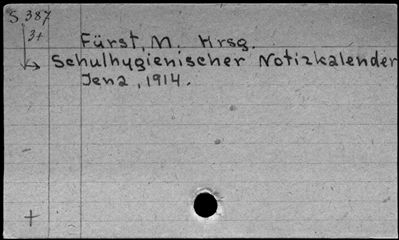 S 387
3+
Fürst, M. Hrsg.
Schulhygienischer Notizkalender
Jena, 1914.
+